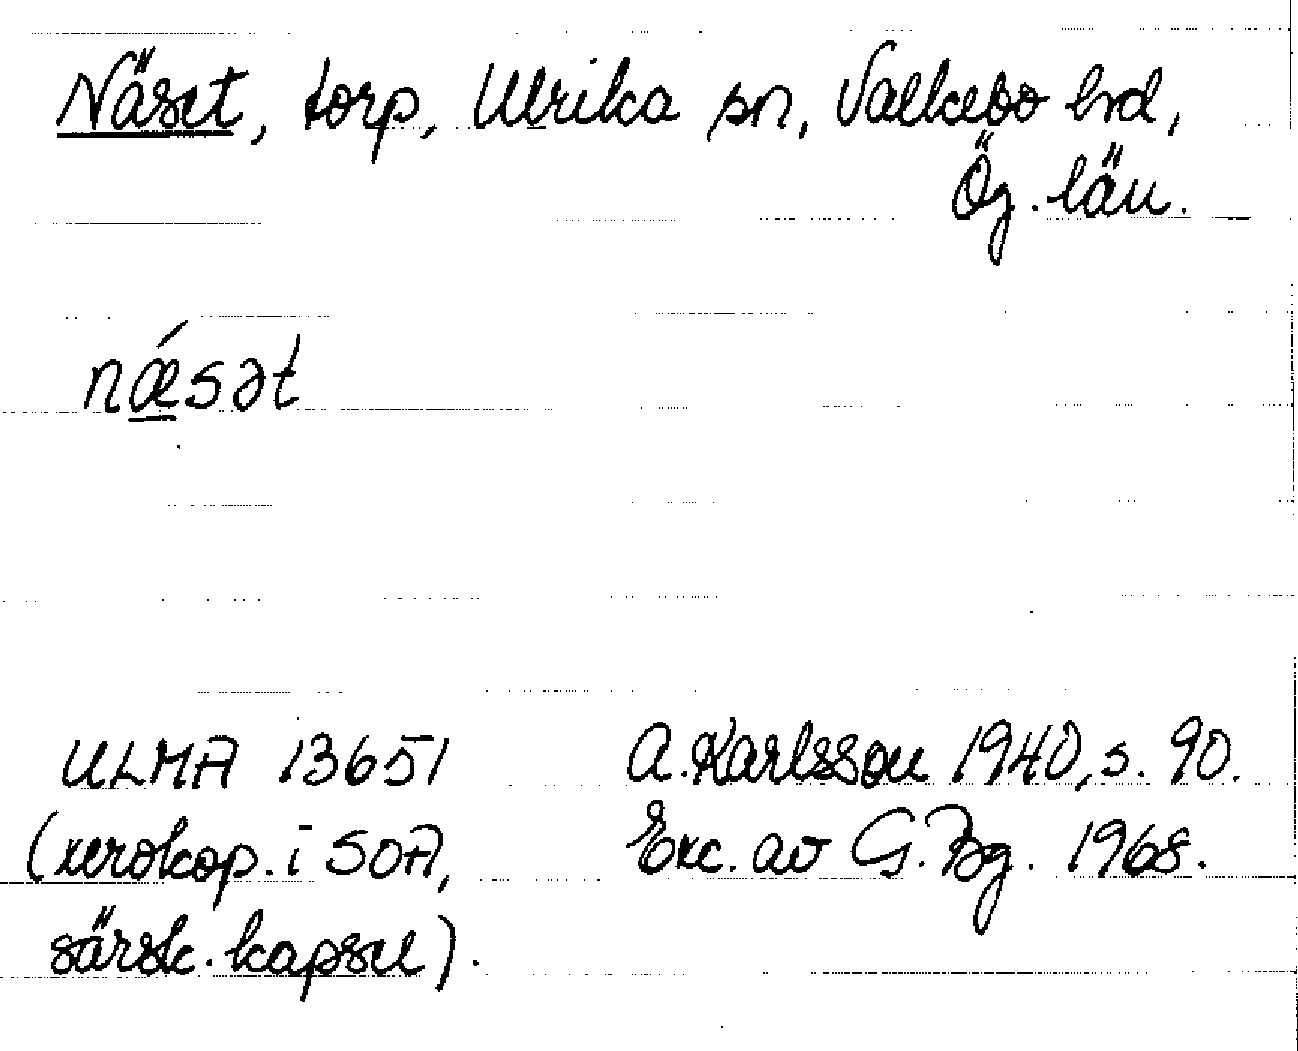 Näset, torp, Ulrika sn, Valkebo hd,
Ög. län.
nǽsət
ULMA 13651
(xerokop. i SOA,
särsk. kapsel).
A. Karlsson 1940, s. 90.
Exc. av G. Bg. 1968.